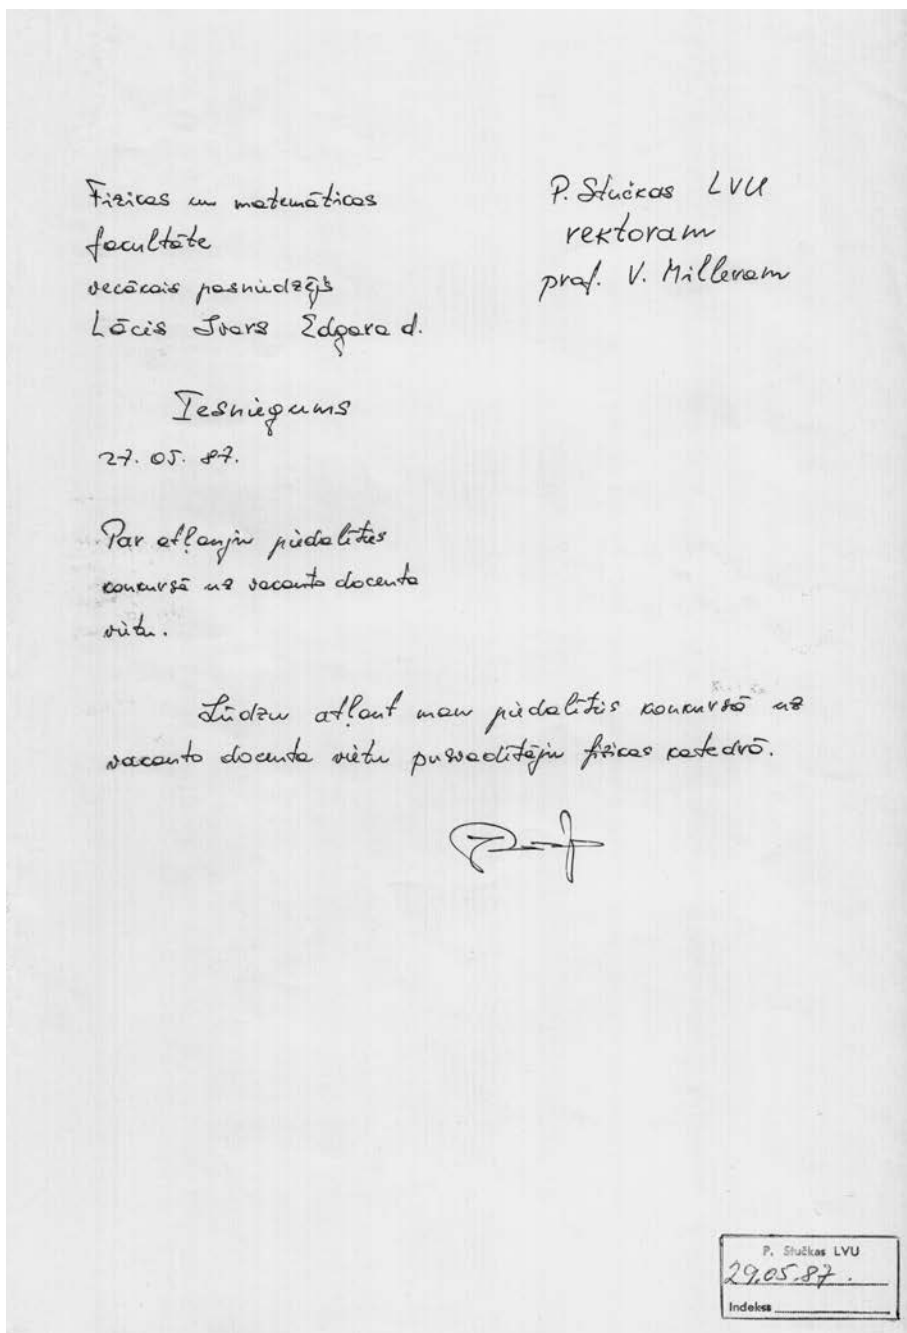 Fizikas un matemātikas
fakultāte
vecākais pasniedzējs
Lācis Ivars Edgara d.
P. Stučkas LVU
rektoram
prof. V. Milleram
Iesniegums
27. 05. 87.
Par atļauju piedalīties
konkursā uz vakanto docenta
vietu.
Lūdzu atļaut man piedalīties konkursā uz
vakanto docenta vietu pusvadītāju fizikas katedrā.
P. Stučkas LVU
29.05.87.
Indekss